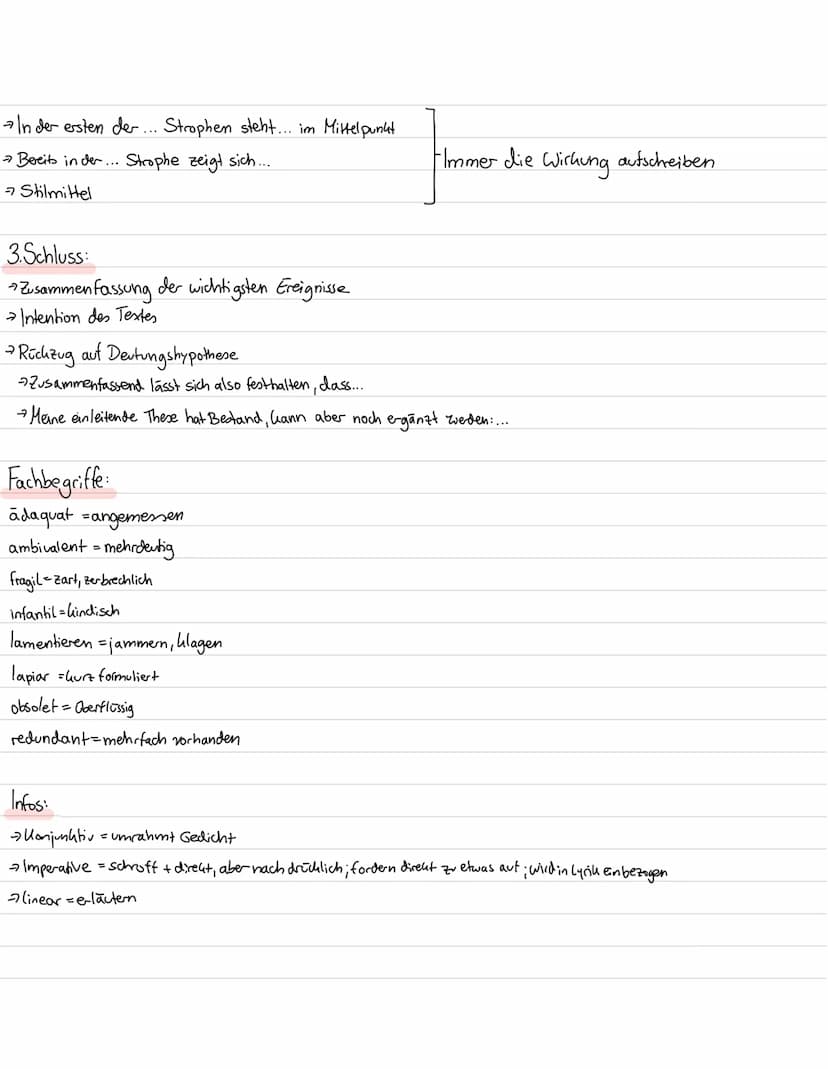 → In der ersten der ... Strophen steht... im Mittelpunkt
→ Bereits in der ... Strophe zeigt sich...
→ Stilmittel
Immer die Wirkung aufschreiben
3. Schluss:
→ Zusammenfassung der wichtigsten Ereignisse
→ Intention des Textes
→ Rückzug auf Deutungshypothese
→ Zusammenfassend lässt sich also festhalten, dass...
→ Meine einleitende These hat Bestand, kann aber noch ergänzt werden:...
Fachbegriffe:
ädaquat = angemessen
ambivalent = mehrdeutig
fragil = zart, zerbrechlich
infantil = kindisch
lamentieren = jammern, klagen
lapiar = kurz formuliert
obsolet = überflüssig
redundant = mehrfach vorhanden
Infos:
→ Konjunktiv = umrahmt Gedicht
→ Imperative = schroff + direkt, aber nachdrücklich; fordern direkt zu etwas auf; wird in Lyrik einbezogen
→ linear = erläutern